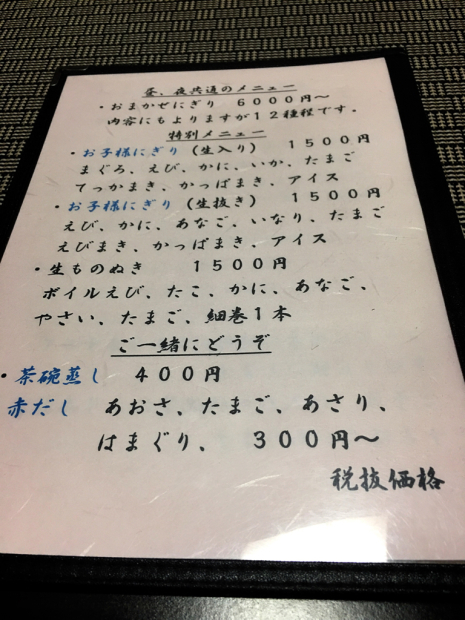 昼、夜共通のメニュー
・おまかせにぎり 6000円〜
内容にもよりますが12種程です。
特別メニュー
・お子様にぎり (生入り) 1500円
まぐろ、えび、かに、いか、たまご
てっかまき、かっぱまき、アイス
・お子様にぎり (生抜き) 1500円
えび、かに、あなご、いなり、たまご
えびまき、かっぱまき、アイス
・生ものぬき 1500円
ボイルえび、たこ、かに、あなご、
やさい、たまご、細巻1本
ご一緒にどうぞ
・茶碗蒸し 400円
赤だし あおさ、たまご、あさり、
はまぐり、 300円〜
税抜価格